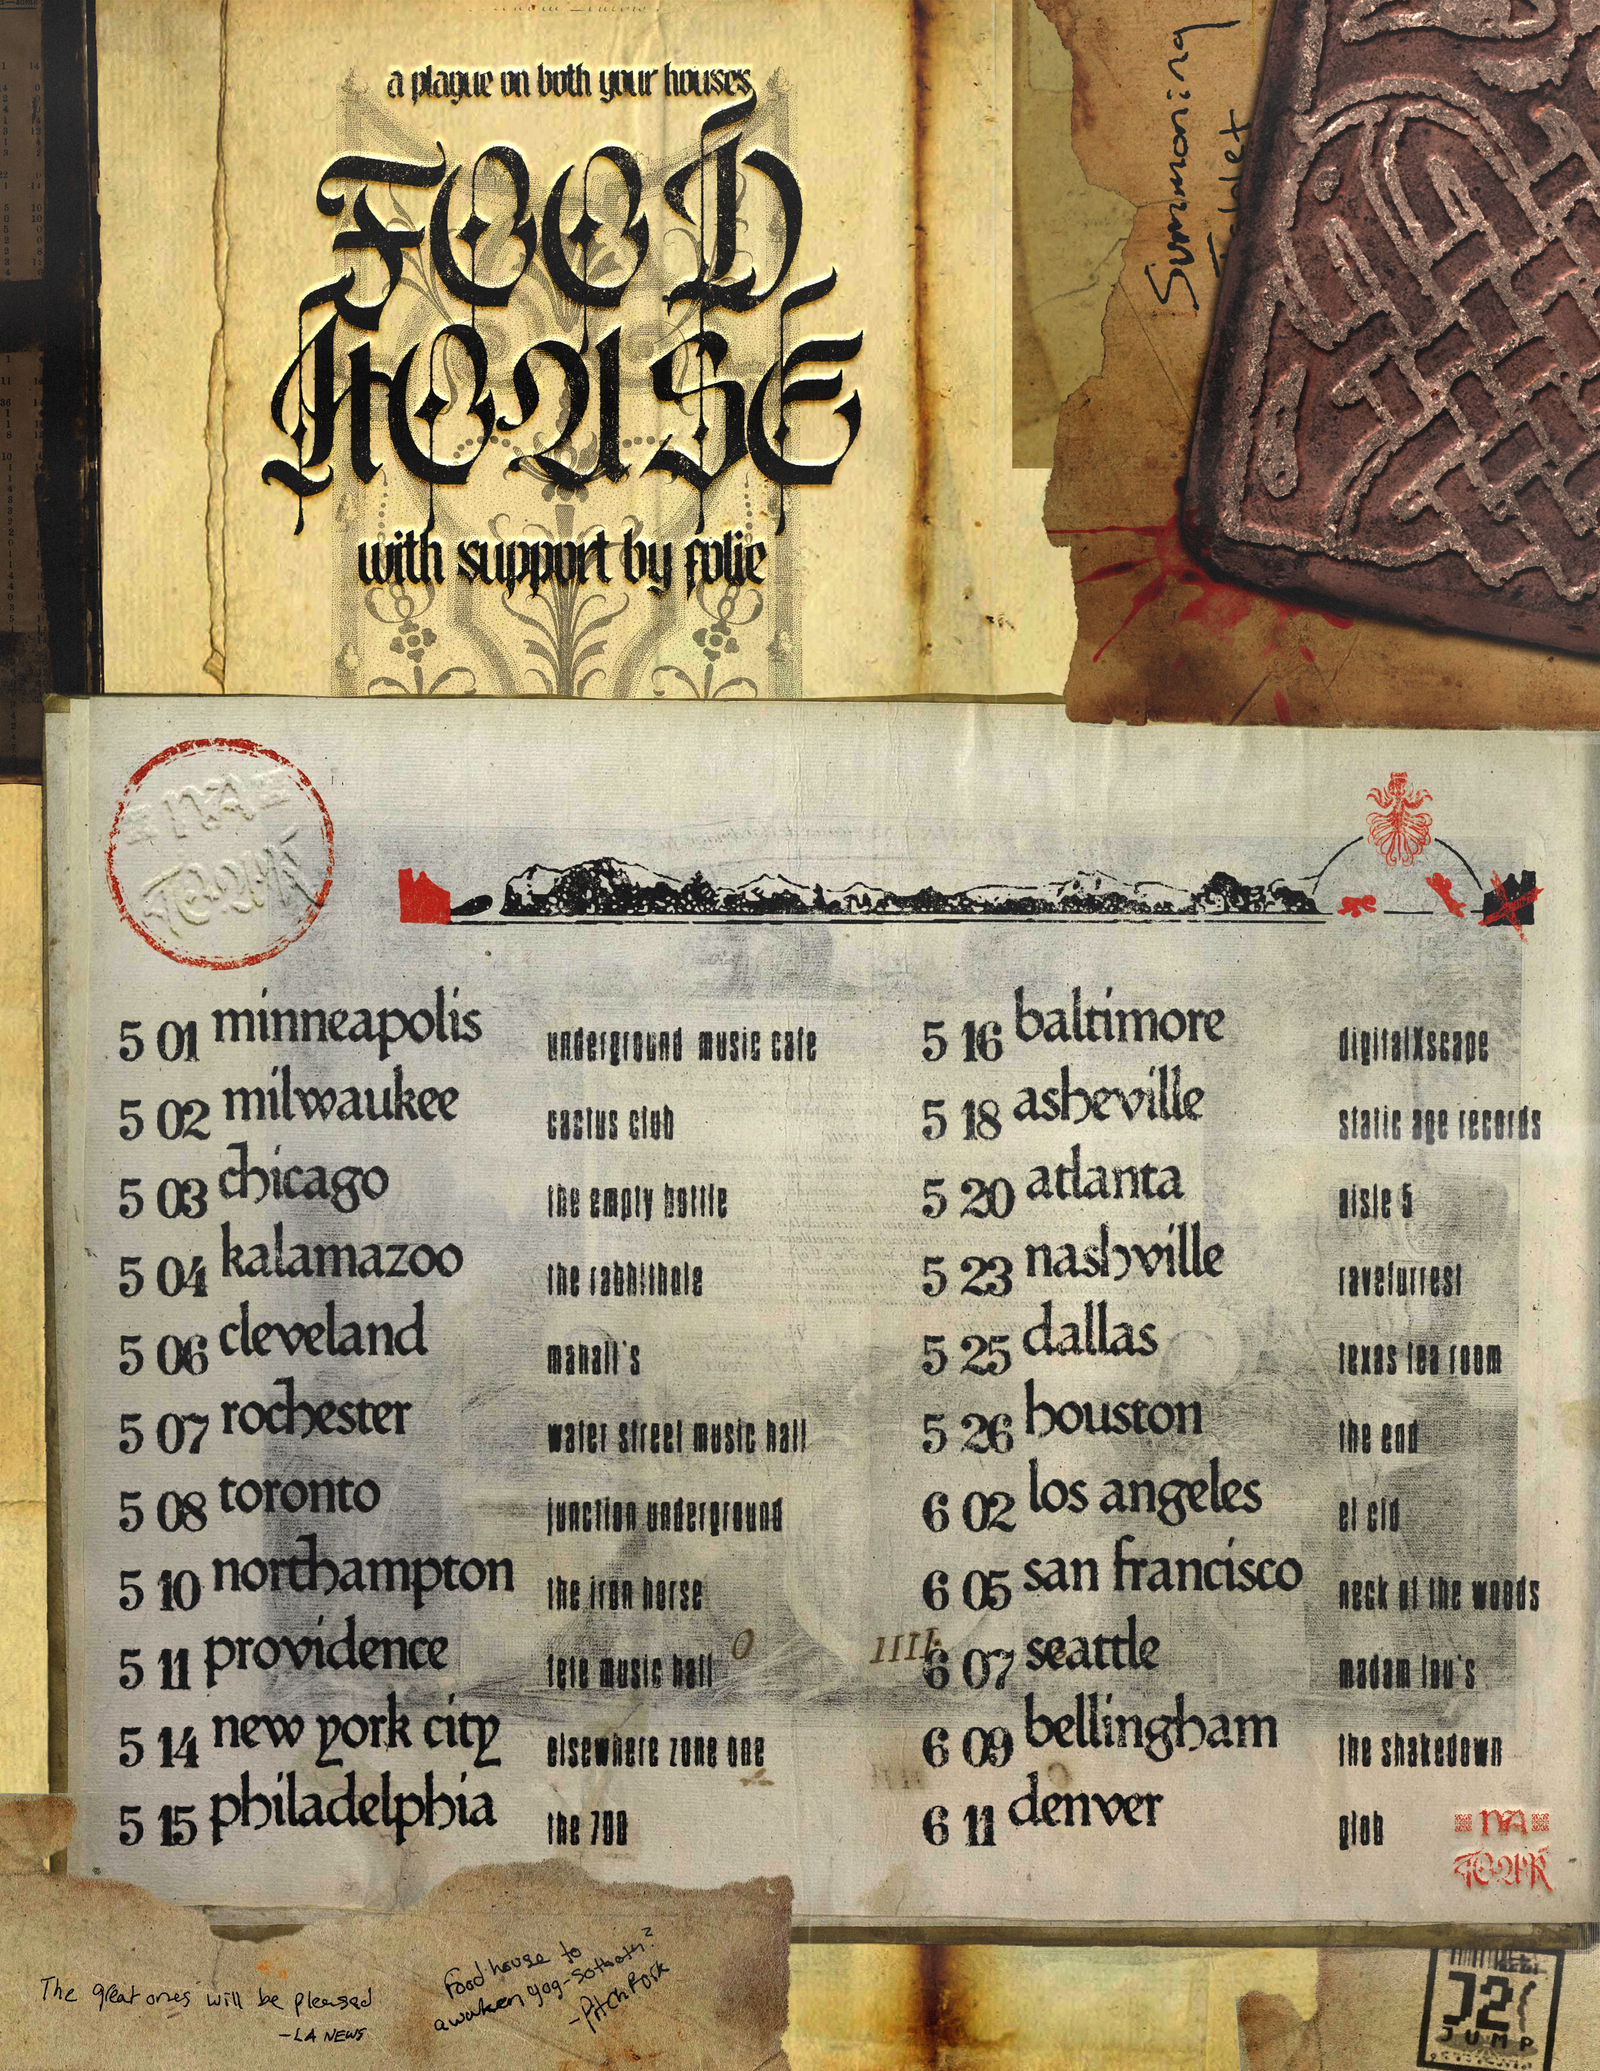 a plague on both your houses
FOOD
HOUSE
with support by folie
Summoning
Tablet
5 01 minneapolis underground music cafe
5 02 milwaukee cactus club
5 03 chicago the empty bottle
5 04 kalamazoo the rabbithole
5 06 cleveland mahall's
5 07 rochester water street music hall
5 08 toronto junction underground
5 10 northampton the iron horse
5 11 providence fete music hall
5 14 new york city elsewhere zone one
5 15 philadelphia the 700
5 16 baltimore digitalXscape
5 18 asheville static age records
5 20 atlanta aisle 5
5 23 nashville ravefurrest
5 25 dallas texas tea room
5 26 houston the end
6 02 los angeles el cid
6 05 san francisco neck of the woods
6 07 seattle madam lou's
6 09 bellingham the shakedown
6 11 denver glob
NA
TOUR
The great ones will be pleased
-LA NEWS
Food house to
awaken yog-sothoth?
-Pitchfork
JUMP